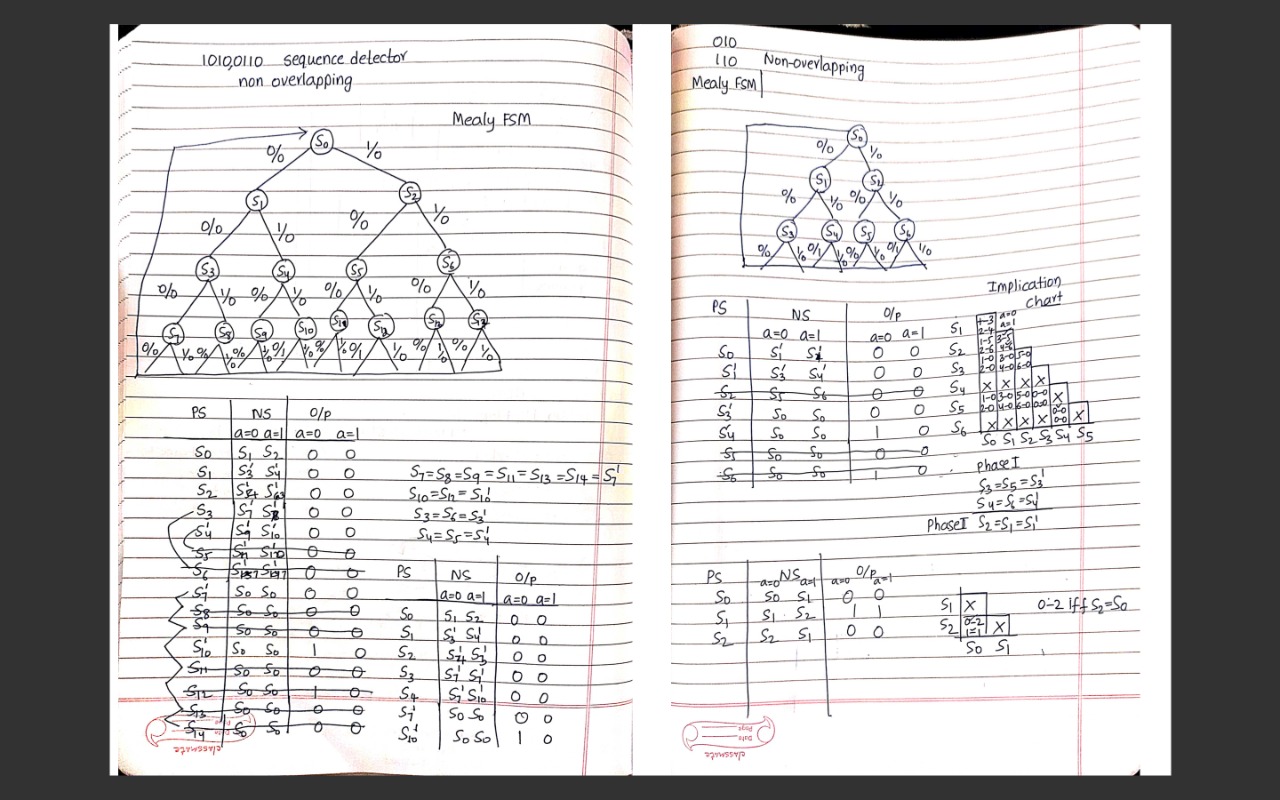 1010,0110 sequence detector
non overlapping
Mealy FSM
S0
0/0 1/0
S1 S2
0/0 1/0 0/0 1/0
S3 S4 S5 S6
0/0 1/0 0/0 1/0 0/0 1/0 0/0 1/0
S7 S8 S9 S10
PS NS O/P
a=0 a=1 a=0 a=1
S0 S1 S2 0 0
S1 S3' S4' 0 0
S2 0 0
S3 S7' 0 0
S4' S9' S10' 0 0
S5 0 0
S6 0 0
S7' S0 S0 0 0
S8 S0 S0 0 0
S9 S0 S0 0 0
S10' S0 S0 1 0
S11 S0 S0 0 0
S12 S0 S0 1 0
S13 S0 S0 0 0
S14 S0 S0 0 0
S7=S8=S9=S11=S13=S14=S7'
S10=S12=S10'
S3=S6=S3'
S4=S5=S4'
PS NS O/P
a=0 a=1 a=0 a=1
S0 S1 S2 0 0
S1 S3' S4' 0 0
S2 S4' S3' 0 0
S3 S7' S7' 0 0
S4 S7' S10' 0 0
S7' S0 S0 0 0
S10' S0 S0 1 0
classmate
Date
Page
010
110 Non-overlapping
Mealy FSM
S0
0/0 1/0
S1 S2
0/0 1/0 0/0 1/0
S3 S4 S5 S6
0/0 1/0 0/1 1/0 0/0 1/0 0/1 1/0
PS NS O/P
a=0 a=1 a=0 a=1
S0 S1' 0 0
S1' S3' S4' 0 0
S2 S5 S6 0 0
S3' S0 S0 0 0
S4' S0 S0 1 0
S5 S0 S0 0 0
S6 S0 S0 1 0
Implication
chart
S1 1-3 a=0
2-4 a=1
S2 1-5 3-5
2-6 4-6
S3 1-0 3-0 5-0
2-0 4-0 6-0
S4 X X X X
S5 1-0 3-0 5-0 0-0 X
2-0 4-0 6-0 0-0
S6 X X X X 0-0 X
0-0
S0 S1 S2 S3 S4 S5
Phase I
S3=S5=S3'
S4=S6=S4'
Phase II S2=S1=S1'
PS NS O/P
a=0 a=1 a=0 a=1
S0 S0 S1 0 0
S1 S1 S2 1 1
S2 S2 S1 0 0
S1 X
S2 0-2 X
1=1
S0 S1
0-2 iff S2=S0
classmate
Date
Page